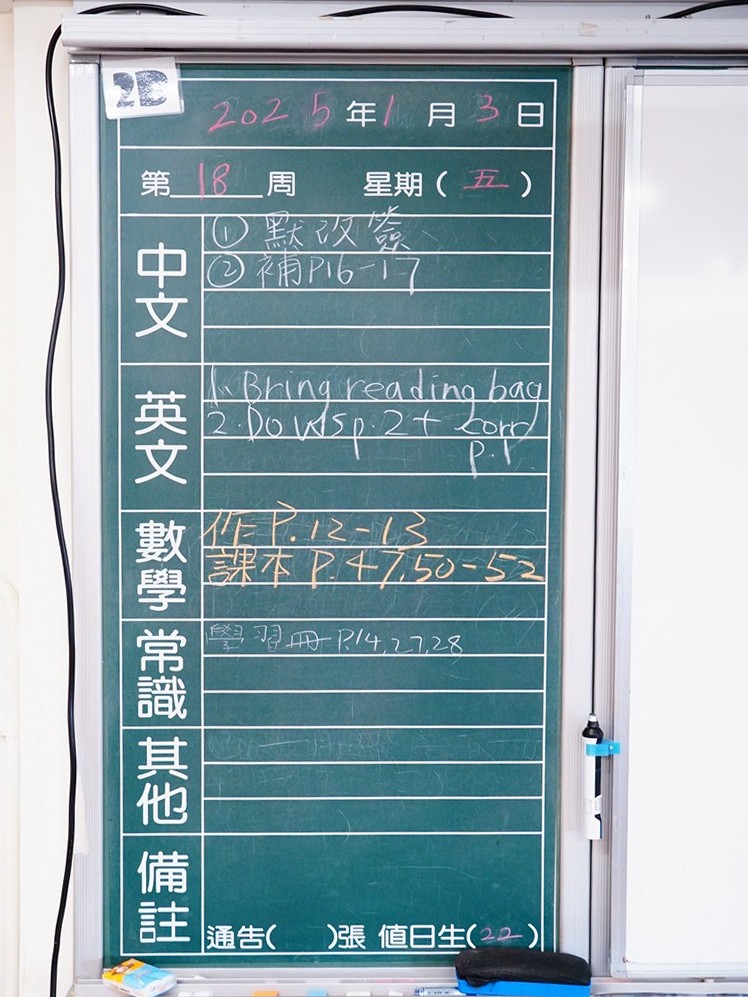 2B
2025年1月3日
第18周 星期(五)
中文
①默改簽
②補P16-17
英文
1. Bring reading bag
2. Do WS p.2 + corr
p.1
數學
作P.12-13
課本P.47,50-52
常識
學習冊P.14,27,28
其他
備註
通告( )張 值日生(22)